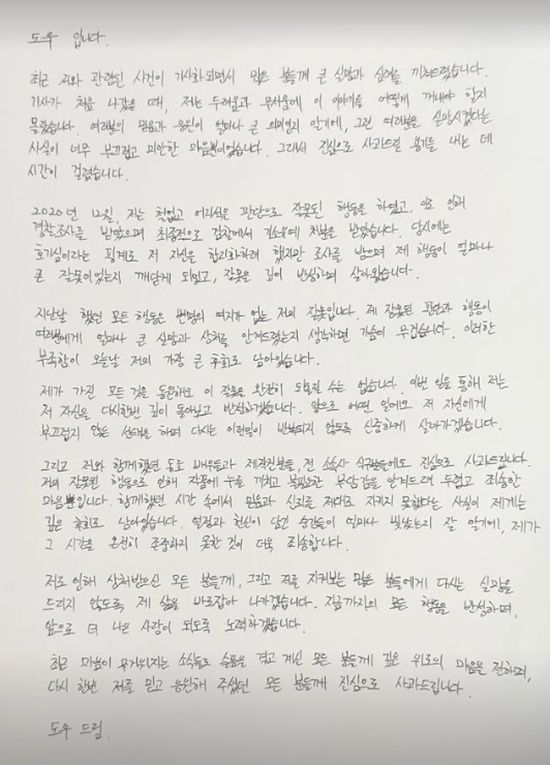 도우 입니다.
최근 저와 관련된 사건이 기사화되면서 많은 분들께 큰 실망과 심려를 끼쳐드렸습니다.
기사가 처음 나갔을 때, 저는 두려움과 무서움에 이 이야기를 어떻게 꺼내야 할지
몰랐습니다. 여러분의 믿음과 응원이 얼마나 큰 의미인지 알기에, 그런 여러분을 실망시켰다는
사실이 너무 부끄럽고 미안한 마음뿐이었습니다. 그래서 진심으로 사과드릴 용기를 내는 데
시간이 걸렸습니다.
2020년 12월, 저는 철없고 어리석은 판단으로 잘못된 행동을 하였고, 이로 인해
경찰조사를 받았으며 최종적으로 검찰에서 기소유예 처분을 받았습니다. 당시에는
호기심이라는 핑계로 저 자신을 합리화하려 했지만 조사를 받으며 제 행동이 얼마나
큰 잘못이었는지 깨닫게 되었고, 잘못을 깊이 반성하며 살아왔습니다.
지난날 했던 모든 행동은 변명의 여지가 없는 저의 잘못입니다. 제 잘못된 판단과 행동이
여러분에게 얼마나 큰 실망과 상처를 안겨드렸는지 생각하면 가슴이 무겁습니다. 이러한
부족함이 오늘날 저의 가장 큰 후회로 남아있습니다.
제가 가진 모든 것을 동원해도 이 잘못을 완전히 되돌릴 수는 없습니다. 이번 일을 통해 저는
저 자신을 다시한번 깊이 돌아보고 반성하겠습니다. 앞으로 어떤 일에도 저 자신에게
부끄럽지 않은 선택을 하며 다시는 이런일이 반복되지 않도록 신중하게 살아가겠습니다.
그리고 저와 함께했던 동료 배우들과 제작진분들, 전 소속사 식구분들에도 진심으로 사과드립니다.
저의 잘못된 행동으로 인해 작품에 누를 끼치고 불필요한 부담감을 안겨드려 무겁고 죄송한
마음뿐입니다. 함께했던 시간 속에서 믿음과 신뢰를 제대로 지키지 못했다는 사실이 제게는
깊은 후회로 남아있습니다. 열정과 헌신이 담긴 순간들이 얼마나 빛났었는지 잘 알기에, 제가
그 시간을 온전히 존중하지 못한 것이 더욱 죄송합니다.
저로 인해 상처받으신 모든 분들께, 그리고 저를 지켜보는 많은 분들에게 다시는 실망을
드리지 않도록 제 삶을 바로잡아 나가겠습니다. 지금까지의 모든 행동을 반성하며,
앞으로 더 나은 사람이 되도록 노력하겠습니다.
최근 마음이 무거워지는 소식들로 슬픔을 겪고 계신 모든 분들께 깊은 위로의 마음을 전하며,
다시 한번 저를 믿고 응원해 주셨던 모든 분들께 진심으로 사과드립니다.
도우 드림.